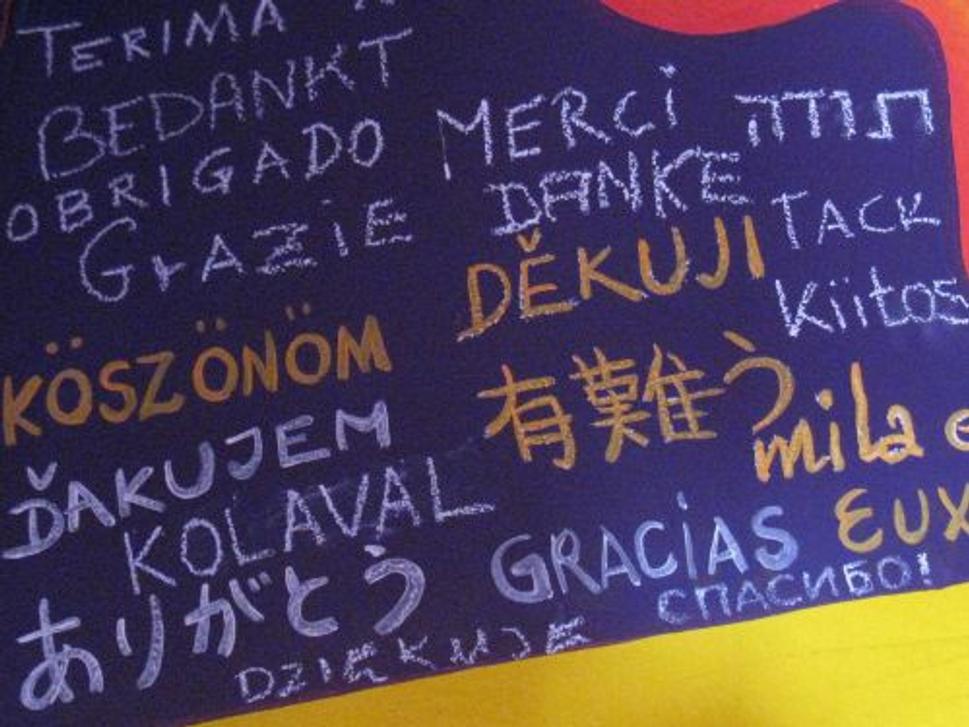 TERIMA
BEDANKT
OBRIGADO
MERCI
תודה
GRAZIE
DANKE
TACK
DĚKUJI
Kiitos
KÖSZÖNÖM
有難う
mila
ĎAKUJEM
KOLAVAL
GRACIAS
EUX
ありがとう
СПАСИБО!
DZIĘKUJE